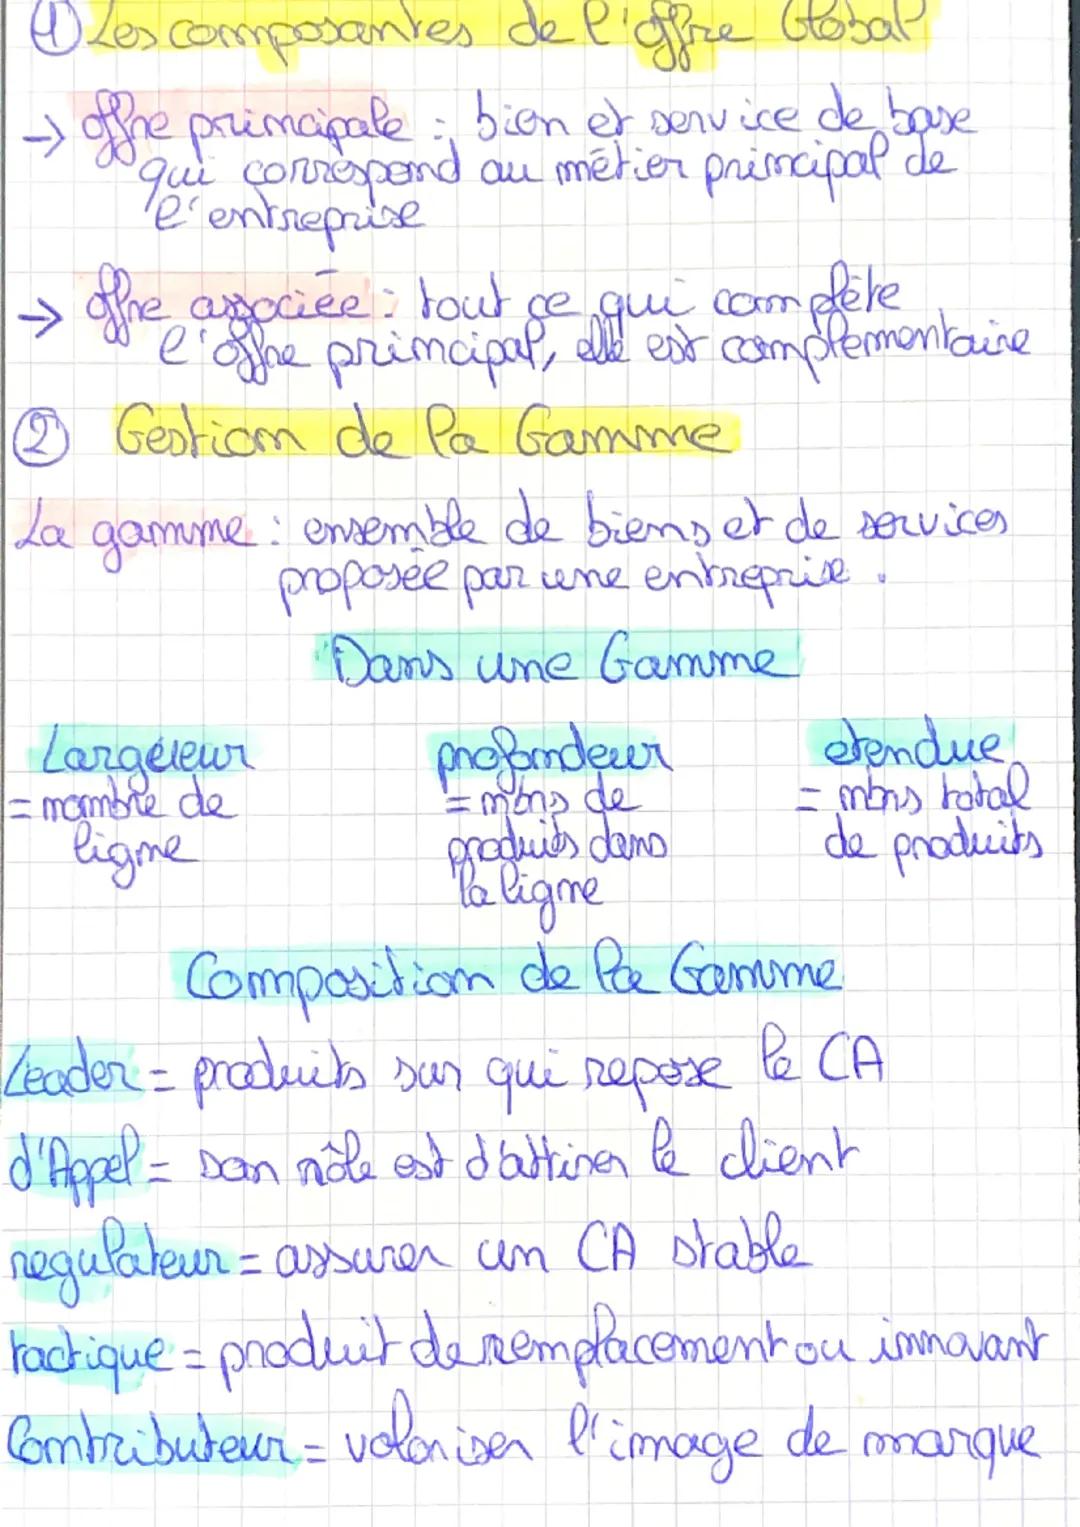 ① Les composantes de l'offre Global
→ offre principale : bien et service de base
qui correspond au métier principal de
l'entreprise
→ offre associée : tout ce qui complète
l'offre principal, elle est complementaire
② Gestion de la Gamme
La gamme : ensemble de biens et de services
proposée par une entreprise.
Dans une Gamme
Largeur profondeur etendue
= nombre de = nbrs de = nbrs total
ligne produits dans de produits
la ligne
Composition de la Gamme
Leader = produits sur qui repose le CA
d'Appel = son rôle est d'attirer le client
regulateur = assurer un CA stable
tactique = produit de remplacement ou innovant
Contributeur = valoriser l'image de marque